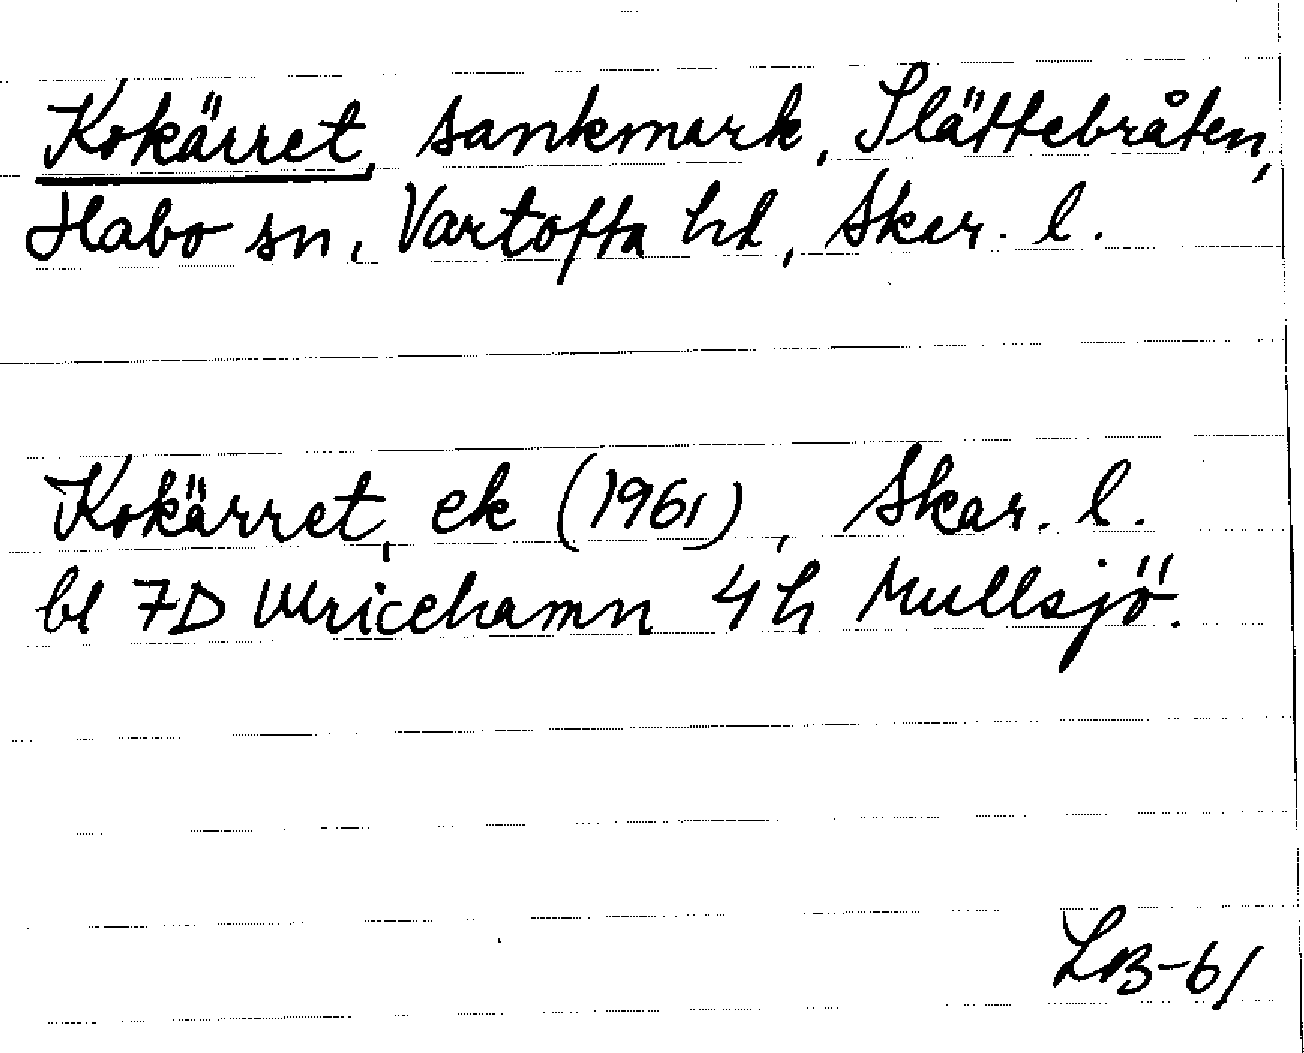 Kokärret, sankmark, Slättebråten,
Habo sn, Vartofta hd, Skar. l.
Kokärret, ek (1961), Skar. l.
bl 7D Ulricehamn 4h Mullsjö.
LB-61